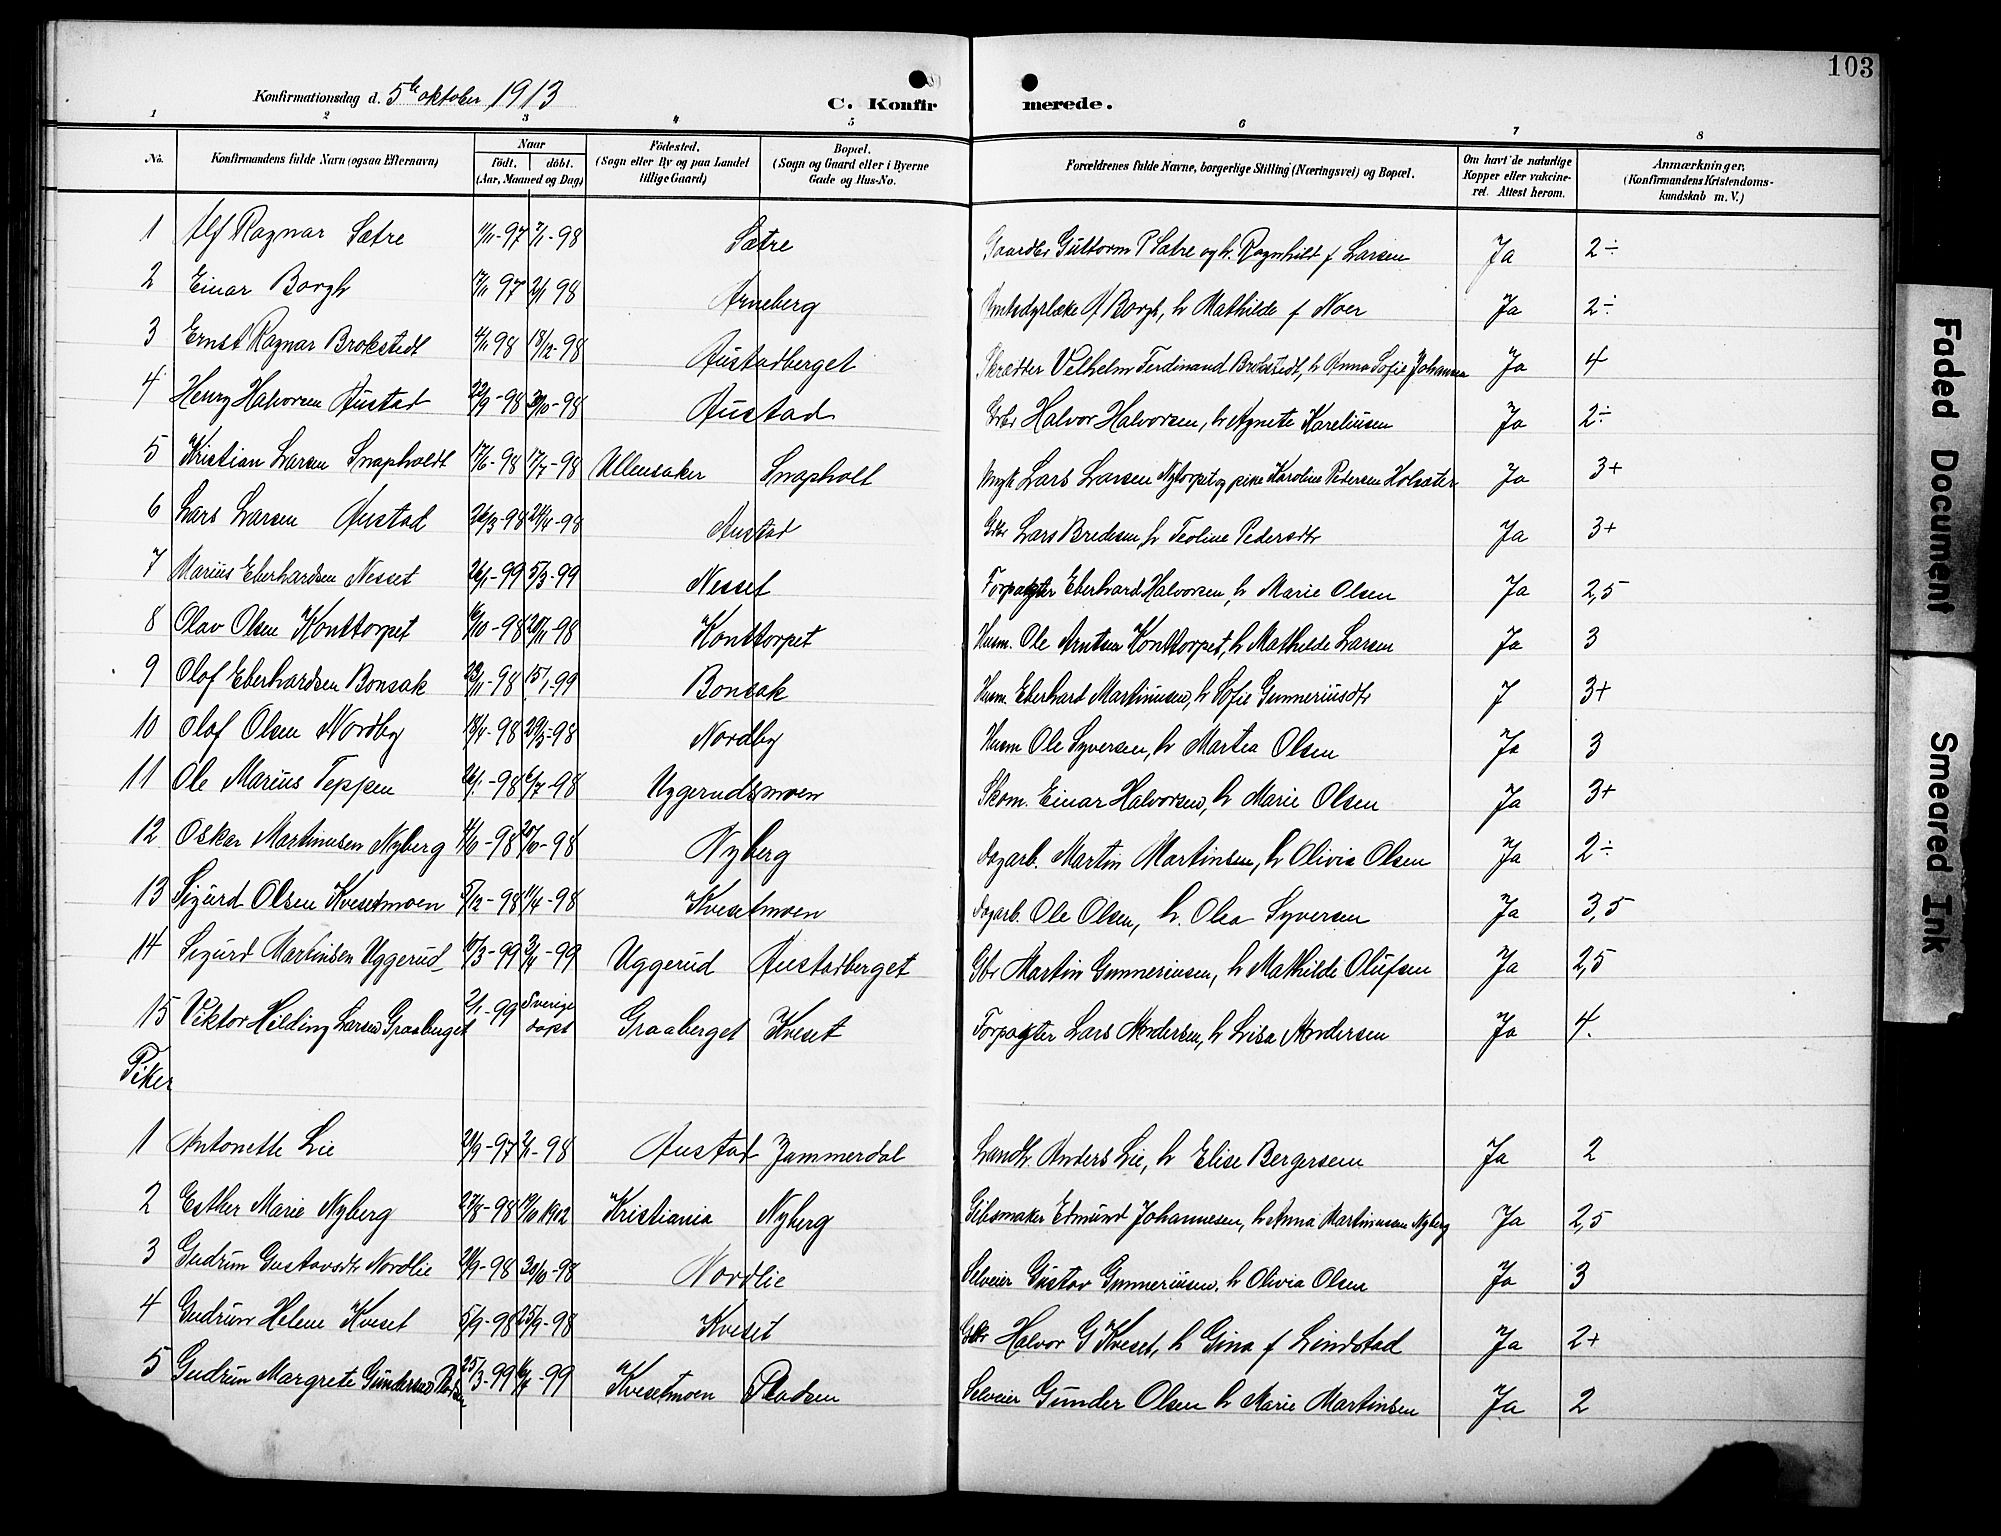 103
Konfirmationsdag d. 5te oktober 1913
C. Konfirmerede.
1 2 3 4 5 6 7 8
No. Konfirmandens fulde Navn (ogsaa Efternavn) Naar født. døbt. (Aar, Maaned og Dag) Fødested. (Sogn eller By og paa Landet tillige Gaard) Bopæl. (Sogn og Gaard eller i Byerne Gade og Hus-No. Forældrenes fulde Navne, borgerlige Stilling (Næringsvei) og Bopæl. Om havt de naturlige Kopper eller vakcineret. Attest herom. Anmærkninger, (Konfirmandens Kristendomskundskab m. V.)
1 Alf Ragnar Sætre 11/11-97 7/1-98 Sætre Gaardbr Guttorm P Sætre og h. Ragnhild f Larsen Ja 2÷
2 Einar Borgh 17/11 97 2/1 98 Arneberg Amtsdyrlæke A Borgh, h Mathilde f Noer Ja 2÷
3 Ernst Ragnar Brokstedt 4/11 98 18/12-98 Austadberget Skrædder Velhelm Ferdinand Brokstedt, h Anna Sofie Johansen Ja 4
4 Henry Halvorsen Austad 22/9-98 30/10-98 Austad Gbr Halvor Halvorsen, h Agnete Kareliusen Ja 2÷
5 Kristian Larsen Snapholdt 17/6-98 17/7-98 Ullensaker Snapholt Ungk Lars Larsen Nytorpet og pike Karoline Pedersen Holsæter Ja 3+
6 Lars Larsen Austad 26/3-98 24/4-98 Austad Gbr Lars Bredesen, h Teoline Pedersdtr Ja 3+
7 Marius Eberhardsen Nesset 26/1-99 5/3-99 Nesset Forpagter Eberhard Halvorsen, h Marie Olsen Ja 2,5
8 Olav Olsen Konttorpet 16/10-98 20/11-98 Konttorpet Husm. Ole Arntsen Konttorpet, h Mathilde Larsen Ja 3
9 Olaf Eberhardsen Bonsak 23/11-98 15/1-99 Bonsak Husm. Eberhard Martinusen, h Sofie Gunneriusdtr J 3+
10 Olaf Olsen Nordby 13/4-98 29/5-98 Nordby Husm Ole Syversen, h Martea Olsen Ja 3
11 Ole Marius Teppen 26/1-98 6/7-98 Uggerudsmoen Skom. Einar Halvorsen, h Marie Olsen Ja 3+
12 Oskar Martinusen Nyberg 4/6-98 20/10-98 Nyberg Dagarb. Martin Martinsen, h Olivia Olsen Ja 2÷
13 Sigurd Olsen Kvesetmoen 5/12-98 11/4-98 Kvesetmoen Dagarb. Ole Olsen, h. Olea Syversen Ja 3,5
14 Sigurd Martinsen Uggerud 10/3-99 3/4-99 Uggerud Austadberget Gbr Martin Gunneriusen, h Mathilde Olufsen Ja 2,5
15 Viktor Hilding Larsen Graaberget 2/1-99 Sverige døpt Graaberget Kveset Forpagter Lars Andersen, h Lisa Andersen Ja 4.
Piker
1 Antonette Lie 21/9-97 2/1-98 Austad Jammerdal Landh. Anders Lie, h Elise Bergersen Ja 2
2 Esther Marie Nyberg 27/8-98 19/10 1902 Kristiania Nyberg Gibsmaker Edmund Johannesen, h Anna Martinusen Nyberg Ja 2,5
3 Gudrun Gustavsdtr Nordlie 21/9-98 30/10-98 Nordlie Selveier Gustav Gunneriusen, h Olivia Olsen Ja 3
4 Gudrun Helene Kveset 5/9-98 25/9-98 Kveset Gbr Halvor G Kveset, h Gina f Lindstad Ja 2+
5 Gudrun Margrete Gundersen Pladsen 25/3-99 6/7-99 Kvesetmoen Pladsen Selveier Gunder Olsen h Marie Martinsen Ja 2
Faded Document
Smeared Ink